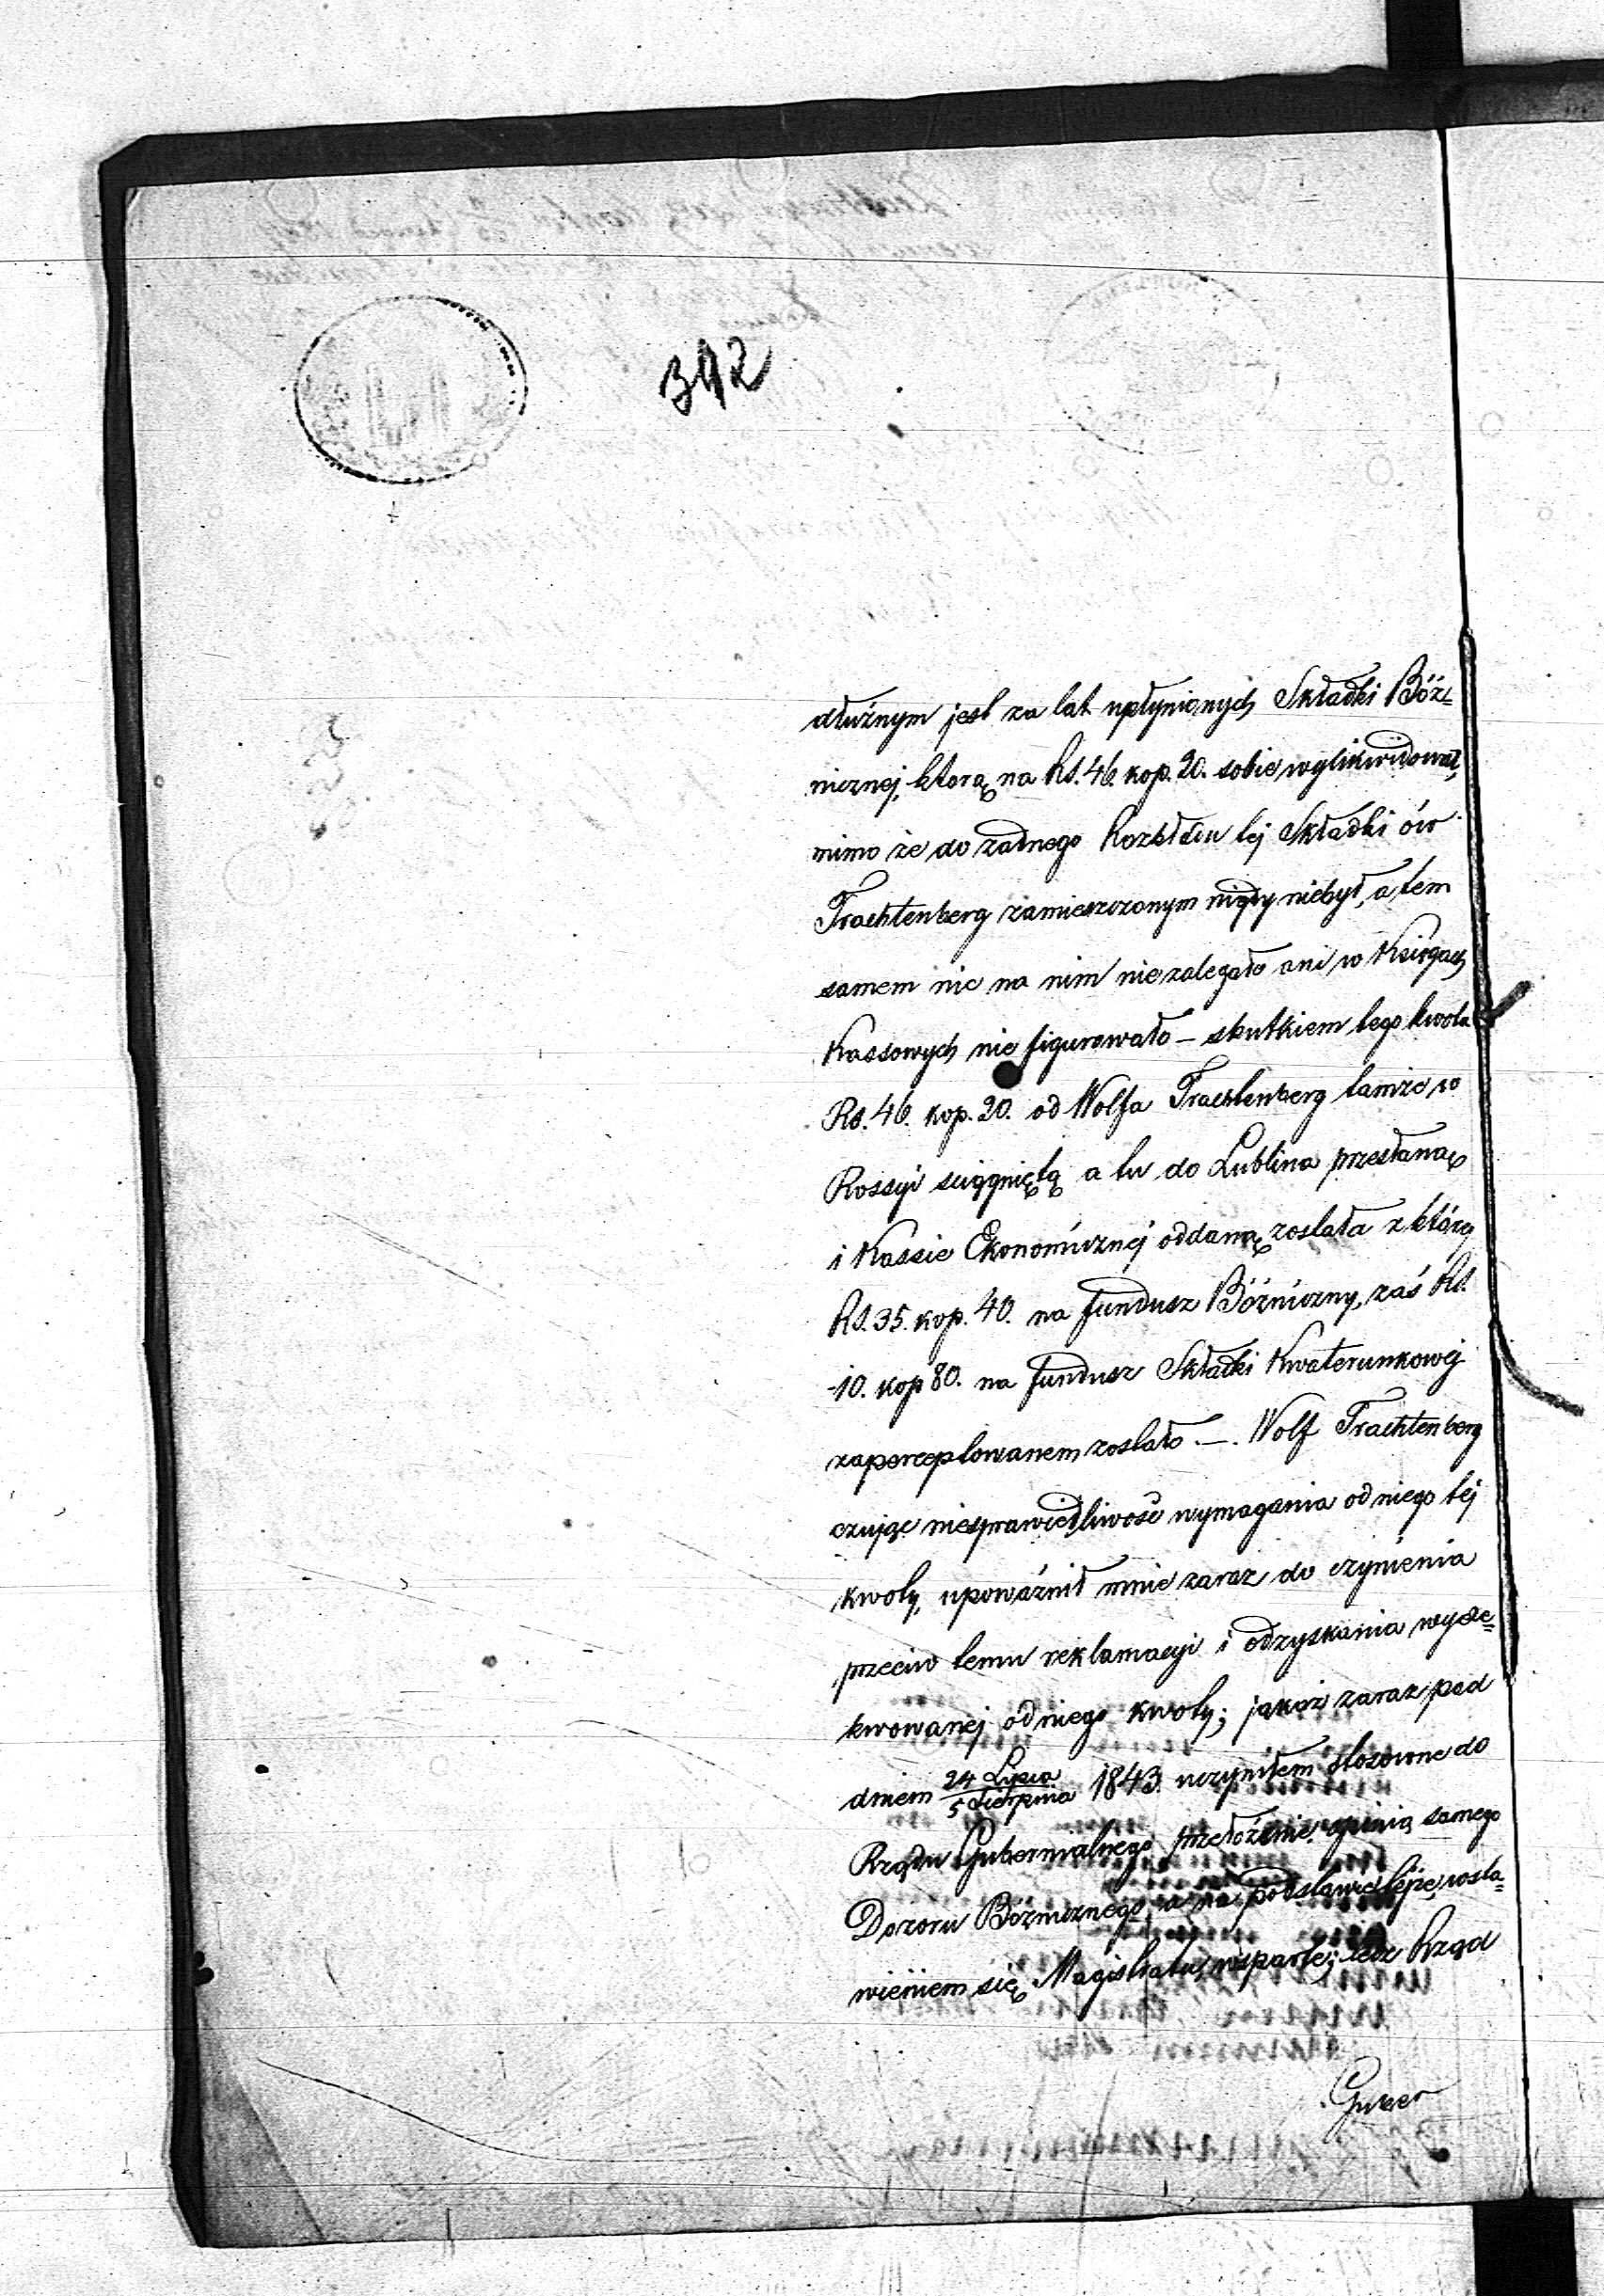 392
dłużnym jest za lat upłynionych Składki Bóż=
nicznej, ktorą na Rs. 46. kop. 20. sobie wylikwidował,
mimo że do żadnego Rozkładu tej Składki ów
Trachtenberg zamieszczonym nigdy niebył, a tem
samem nic na nim niezalegało ani w Księgach
Kassowych nie figurowało – skutkiem tego kwota
Rs. 46. kop. 20. od Wolfa Trachtenberg tamże w
Rossyi sciągniętą a tu do Lublina przesłaną
i Kassie Ekonomicznej oddaną została z której
Rs. 35. kop. 40. na fundusz Bóżniczny, zaś Rs.
10. kop 80. na fundusz Składki Kwaterunkowej
zaperceptowanem zostało. –. Wolf Trachtenberg
czując niesprawiedliwość wymagania od niego tej
kwoty, upoważnił mnie zaraz do czynienia
przeciw temu reklamacyi i odzyskania wyexe=
kwowanej od niego kwoty; jakoż zaraz pod
dniem 24 Lipca / 5 Sierpnia 1843. uczyniłem stosowne do
Rządu Gubernialnego przełożenie opinią samego
Dozoru Bóżnicznego, a na podstawie tejże, wsta=
wieniem się Magistratu, wsparte; lecz Rząd
Guber